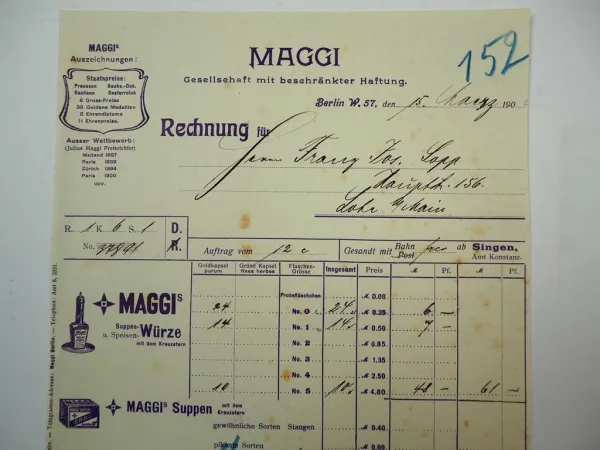 MAGGIs
Auszeichnungen:
Staatspreise:
Preussen Sachs.-Cob.
Sachsen Oesterreich
6 Gross-Preise
38 Goldene Medaillen
8 Ehrendiplome
11 Ehrenpreise.
Ausser Wettbewerb:
(Julius Maggi Preisrichter)
Mailand 1887
Paris 1889
Zürich 1894
Paris 1900
usw.
MAGGI
Gesellschaft mit beschränkter Haftung.
152
Berlin W. 57. den 15. März 190
Rechnung für
Herrn Franz Jos. Sopp
Hauptstr. 156.
Lohr a/Main
R. 1 K 6 S. 1 D.
No. R.
Auftrag vom 12 c Gesandt mit Bahn Post fco ab Singen, Amt Konstanz.
Goldkapsel purum Grünt Kapsel fines herbes Flaschen-Grösse Insgesamt Preis M Pf. M Pf.
MAGGIs
Suppen- u. Speisen-Würze
mit dem Kreuzstern
Probefläschchen M 0.08
24 No. 0 24 M 0.25 6 –
14 No. 1 14 M 0.50 7 –
No. 2 M 0.85
No. 3 M 1.35
No. 4 M 2.50
10 No. 5 10 M 4.80 48 – 61 –
MAGGIs Suppen mit dem Kreuzstern
gewöhnliche Sorten Stangen M 0.40
pikante Sorten M 0.60
Telegramm-Adresse: Maggi Berlin. — Telephon: Amt 6, 3111.